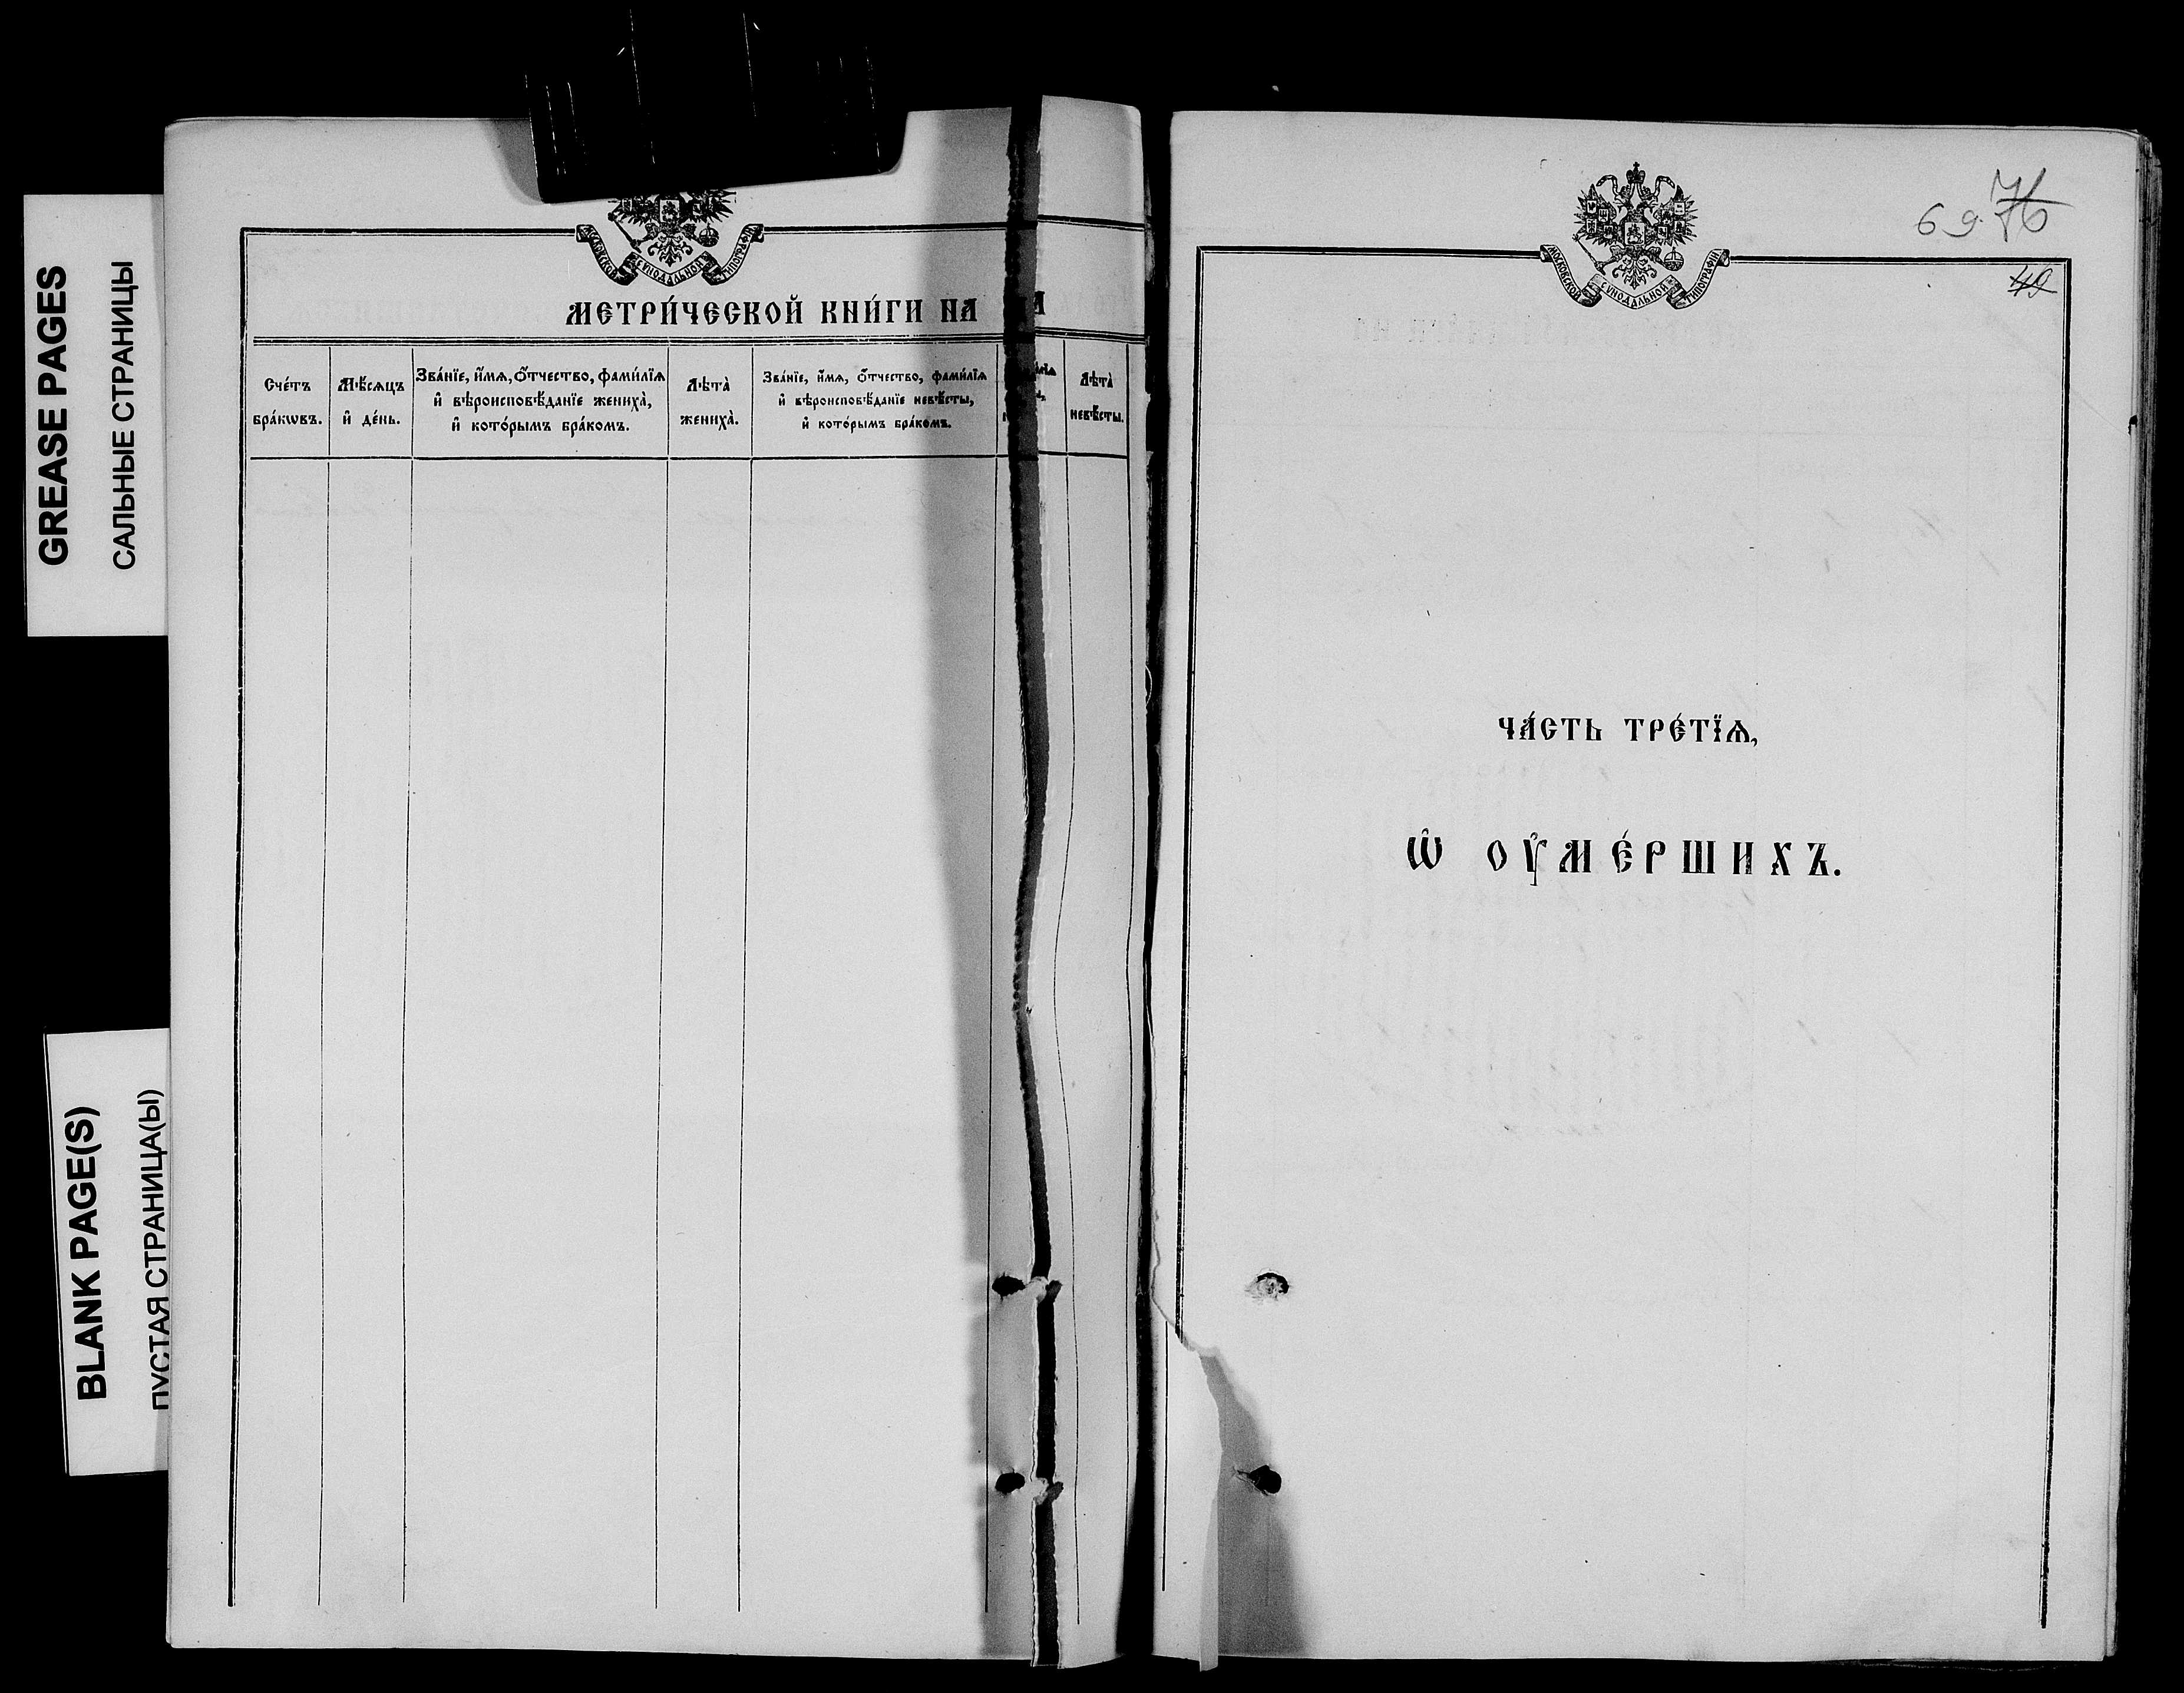 GREASE PAGES
САЛЬНЫЕ СТРАНИЦЫ
BLANK PAGE(S)
ПУСТАЯ СТРАНИЦА(Ы)
МОСКОВСКОЙ СѴНОДАЛЬНОЙ ТИПОГРАФІИ
МЕТРИ́ЧЕСКОЙ КНИ́ГИ НА
Сче́тъ
бра́кѡвъ.
Мѣ́сѧцъ
и҆ де́нь.
Зва́нїе, и҆́мѧ, ѻ҆́тчество, фамі́лїѧ
и҆ вѣроисповѣ́данїе жениха̀,
и҆ кото́рымъ бра́комъ.
Лѣта̀
жениха̀.
Зва́нїе, и҆́мѧ, ѻ҆́тчество, фамі́лїѧ
и҆ вѣроисповѣ́данїе невѣ́сты,
и҆ кото́рымъ бра́комъ.
Лѣта̀
невѣ́сты.
МОСКОВСКОЙ СѴНОДАЛЬНОЙ ТИПОГРАФІИ
69 76
49
ЧА́СТЬ ТРЕ́ТЇѦ,
Ѡ҆ ОУ҆МЕ́РШИХЪ.